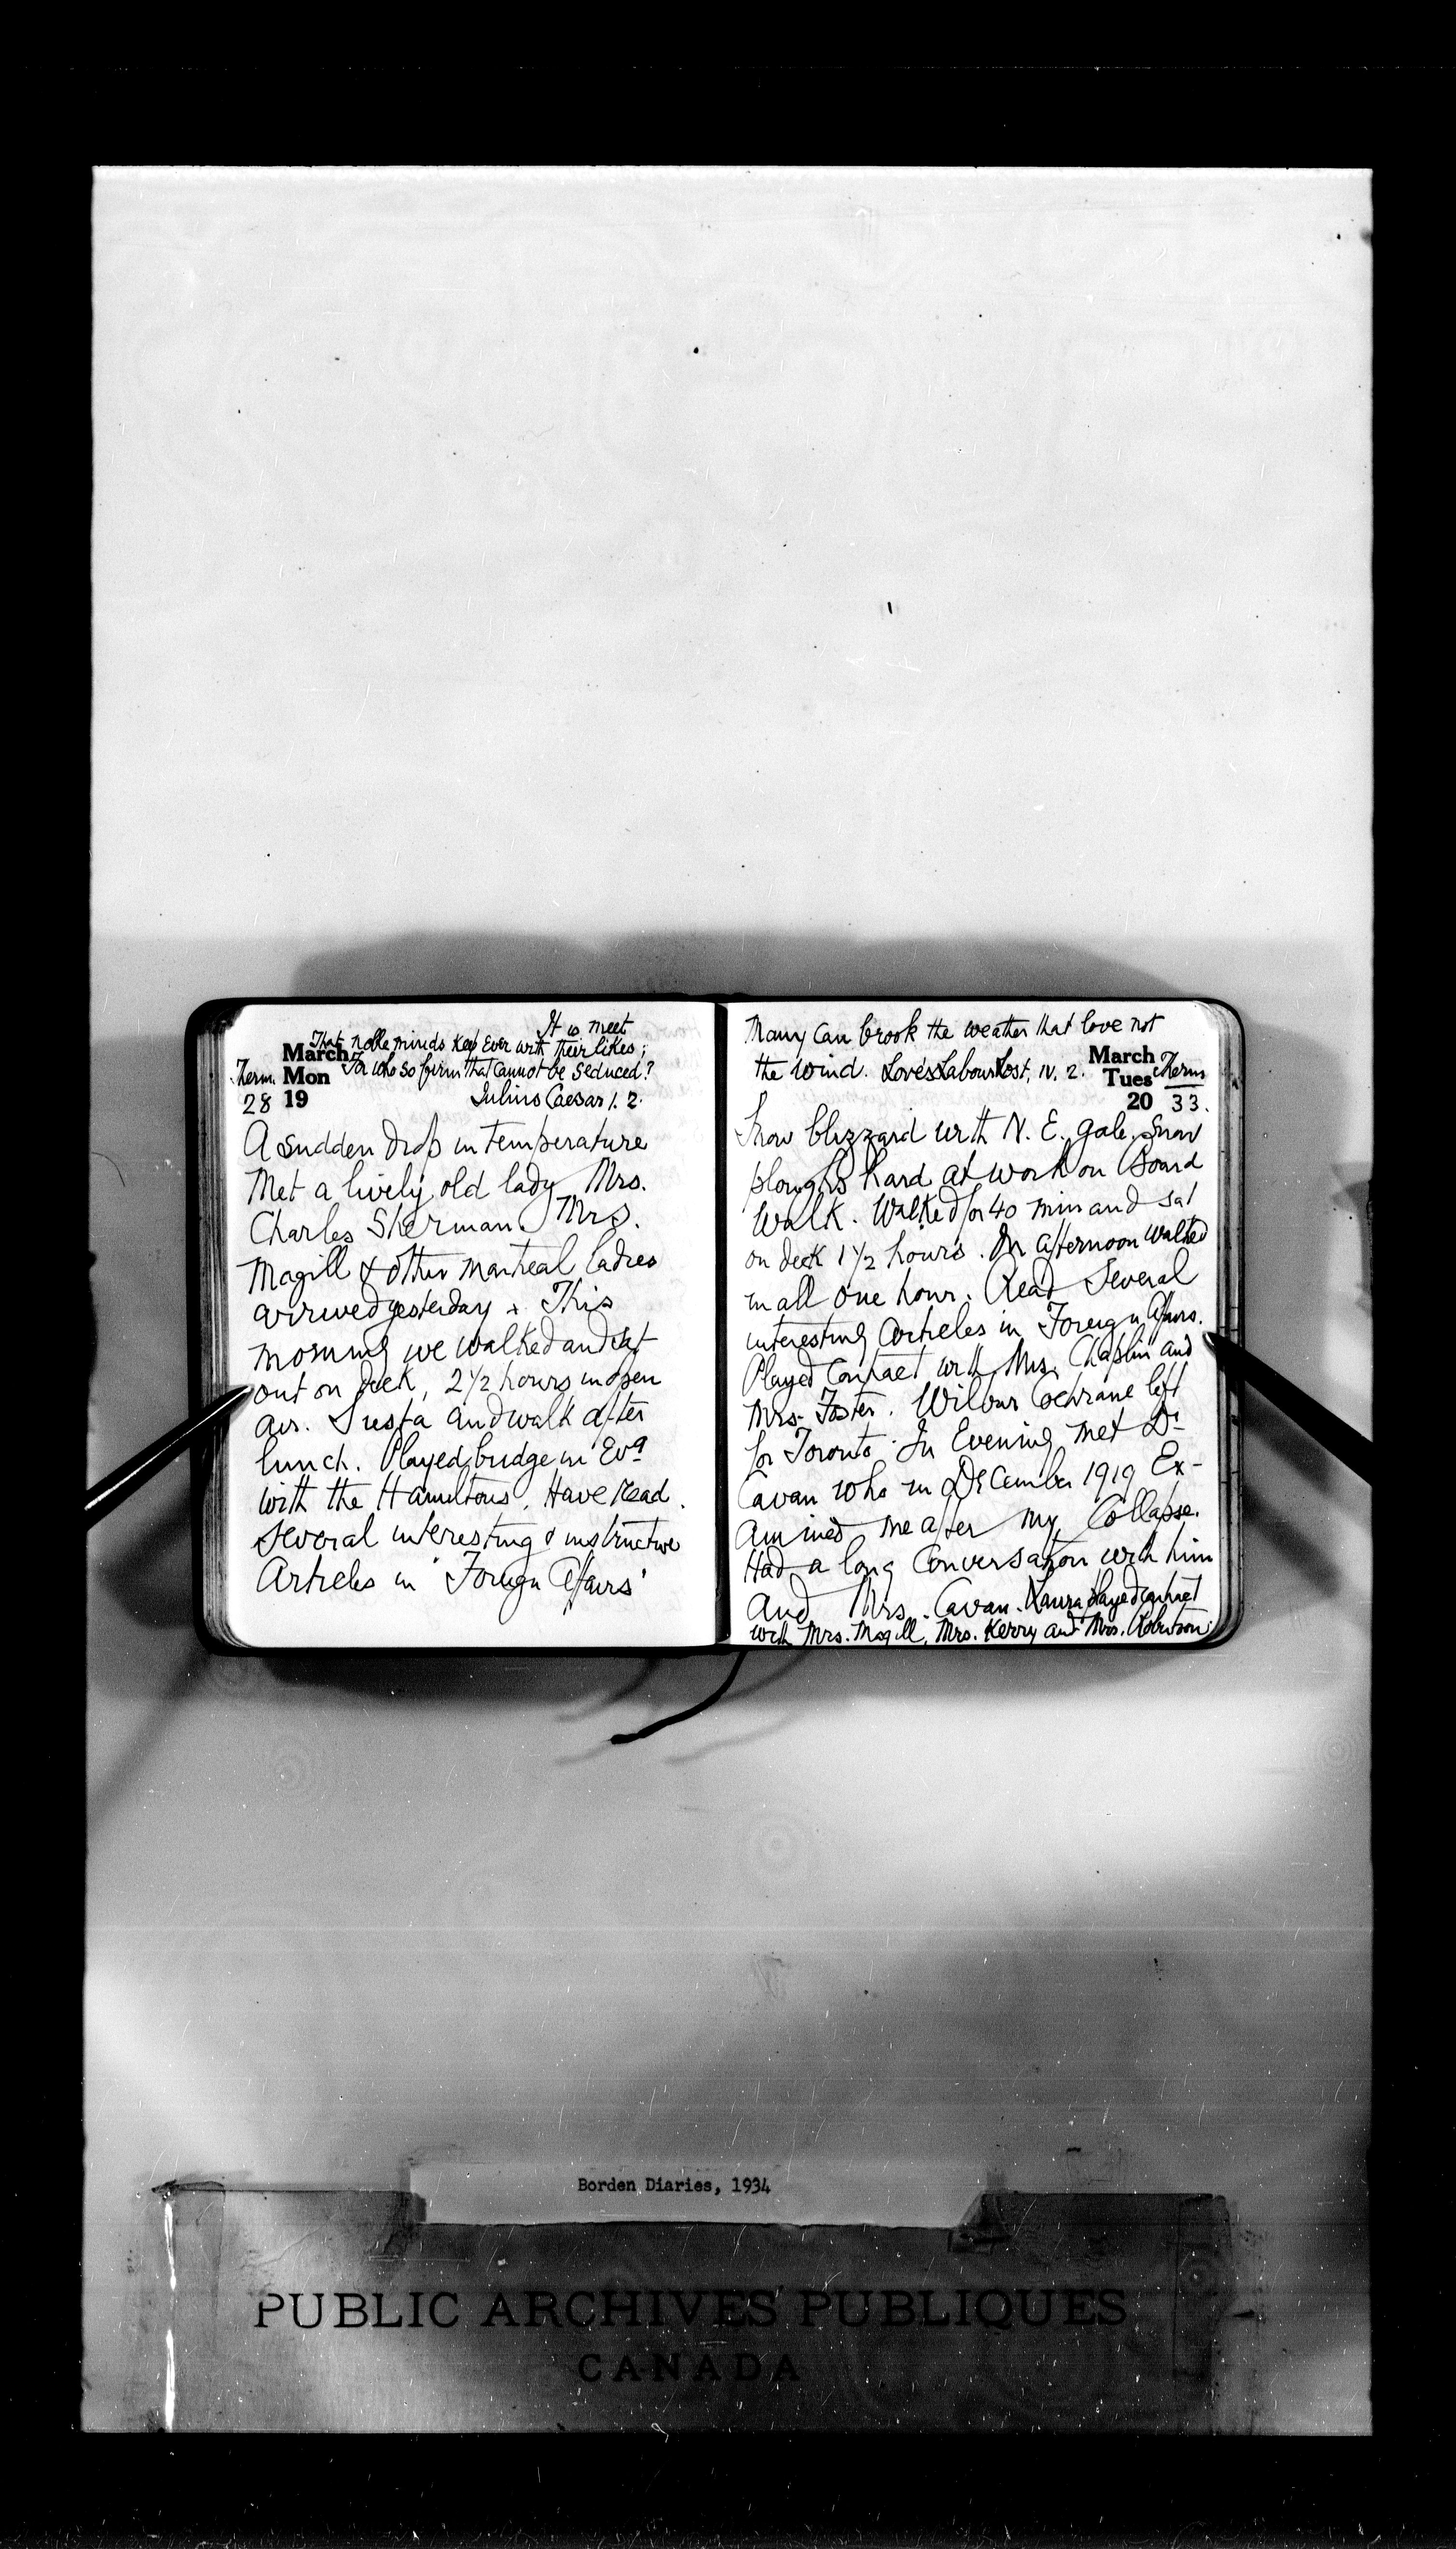 It is meet
That noble minds keep Ever with their likes;
For who so firm that Cannot be Seduced?
Julius Caesar 1. 2.
March
Mon
19
Therm.
28
A sudden drop in temperature
Met a lively old lady Mrs.
Charles Sherman. Mrs.
Magill & other Montreal ladies
arrived yesterday. This
morning we walked and sat
out on deck, 2 1/2 hours in open
air. Siesta and walk after
lunch. Played bridge in Evg
with the Hamiltons. Have read
several interesting & instructive
Articles in 'Foreign Affairs'
Many Can brook the weather that love not
the wind. Love's Labour Lost, IV. 2.
March
Tues
20
Therm
33.
Snow blizzard with N. E. gale. Snow
ploughs hard at work on Board
Walk. Walked for 40 min and sat
on deck 1 1/2 hours. In afternoon walked
in all one hour. Read Several
interesting Articles in Foreign Affairs.
Played Contract with Mrs. Chaplin and
Mrs. Foster. Wilbur Cochrane left
for Toronto. In Evening met Dr
Cavan who in December 1919 Ex-
amined me after my Collapse.
Had a long Conversation with him
and Mrs. Cavan. Laura played contract
with Mrs. Magill, Mrs. Kerry and Mrs. Robertson.
Borden Diaries, 1934
PUBLIC ARCHIVES PUBLIQUES
CANADA